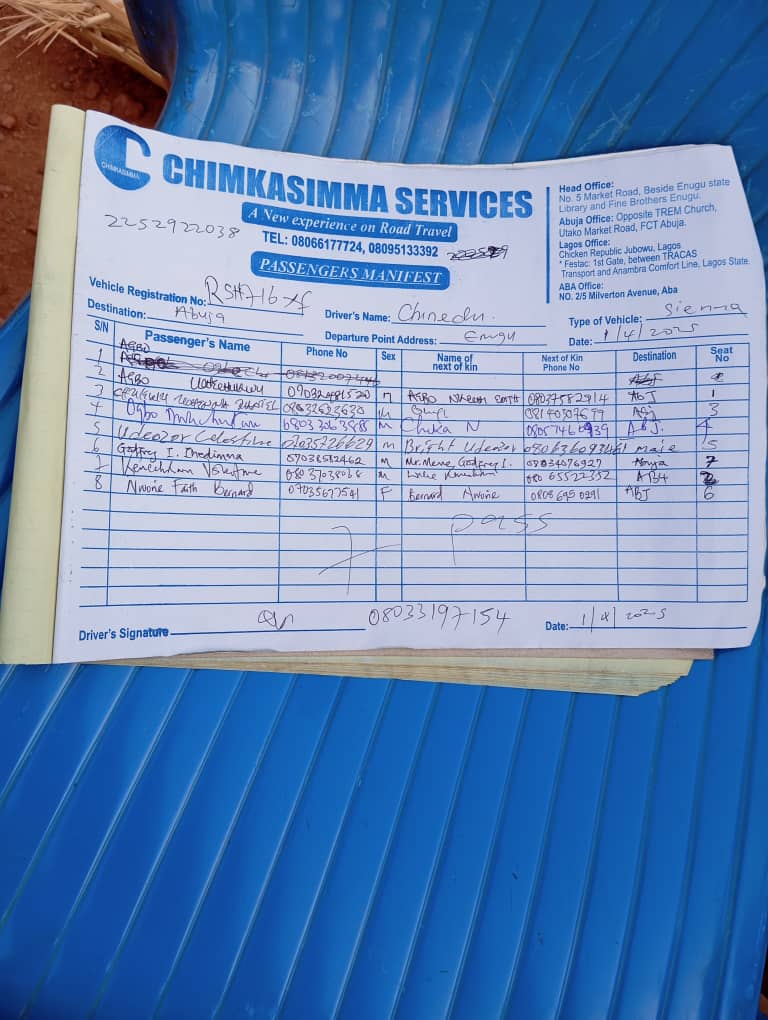 CHIMKASIMMA
CHIMKASIMMA SERVICES
A New experience on Road Travel
TEL: 08066177724, 08095133392
PASSENGERS MANIFEST
2252922038
Head Office:
No. 5 Market Road, Beside Enugu state
Library and Fine Brothers Enugu.
Abuja Office: Opposite TREM Church,
Utako Market Road, FCT Abuja.
Lagos Office:
Chicken Republic Jubowu, Lagos
* Festac: 1st Gate, between TRACAS
Transport and Anambra Comfort Line, Lagos State.
ABA Office:
NO. 2/5 Milverton Avenue, Aba
Vehicle Registration No: RSH716
Driver's Name: Chinedu.
Type of Vehicle: Sienna
Destination: Abuja
Departure Point Address: Enugu
Date: 1/4/2025
S/N Passenger's Name Phone No Sex Name of next of kin Next of Kin Phone No Destination Seat No
1 AGBO
2 AGBO M AGBO 08037582914 ABJ 1
3 3
4 08033063988 M Chuka N ABJ. 4
5 Udeozor Celestine M Bright Udeozor 5
6 Godfrey I. 07038512462 M Mr. Godfrey I. 08034076927 Abuja 7
7 08037038068 M 08065522352 2
8 Faith Bernard 07035677541 F Bernard ABJ 6
7 pass
Driver's Signature 08033197154 Date: 1/4/2025